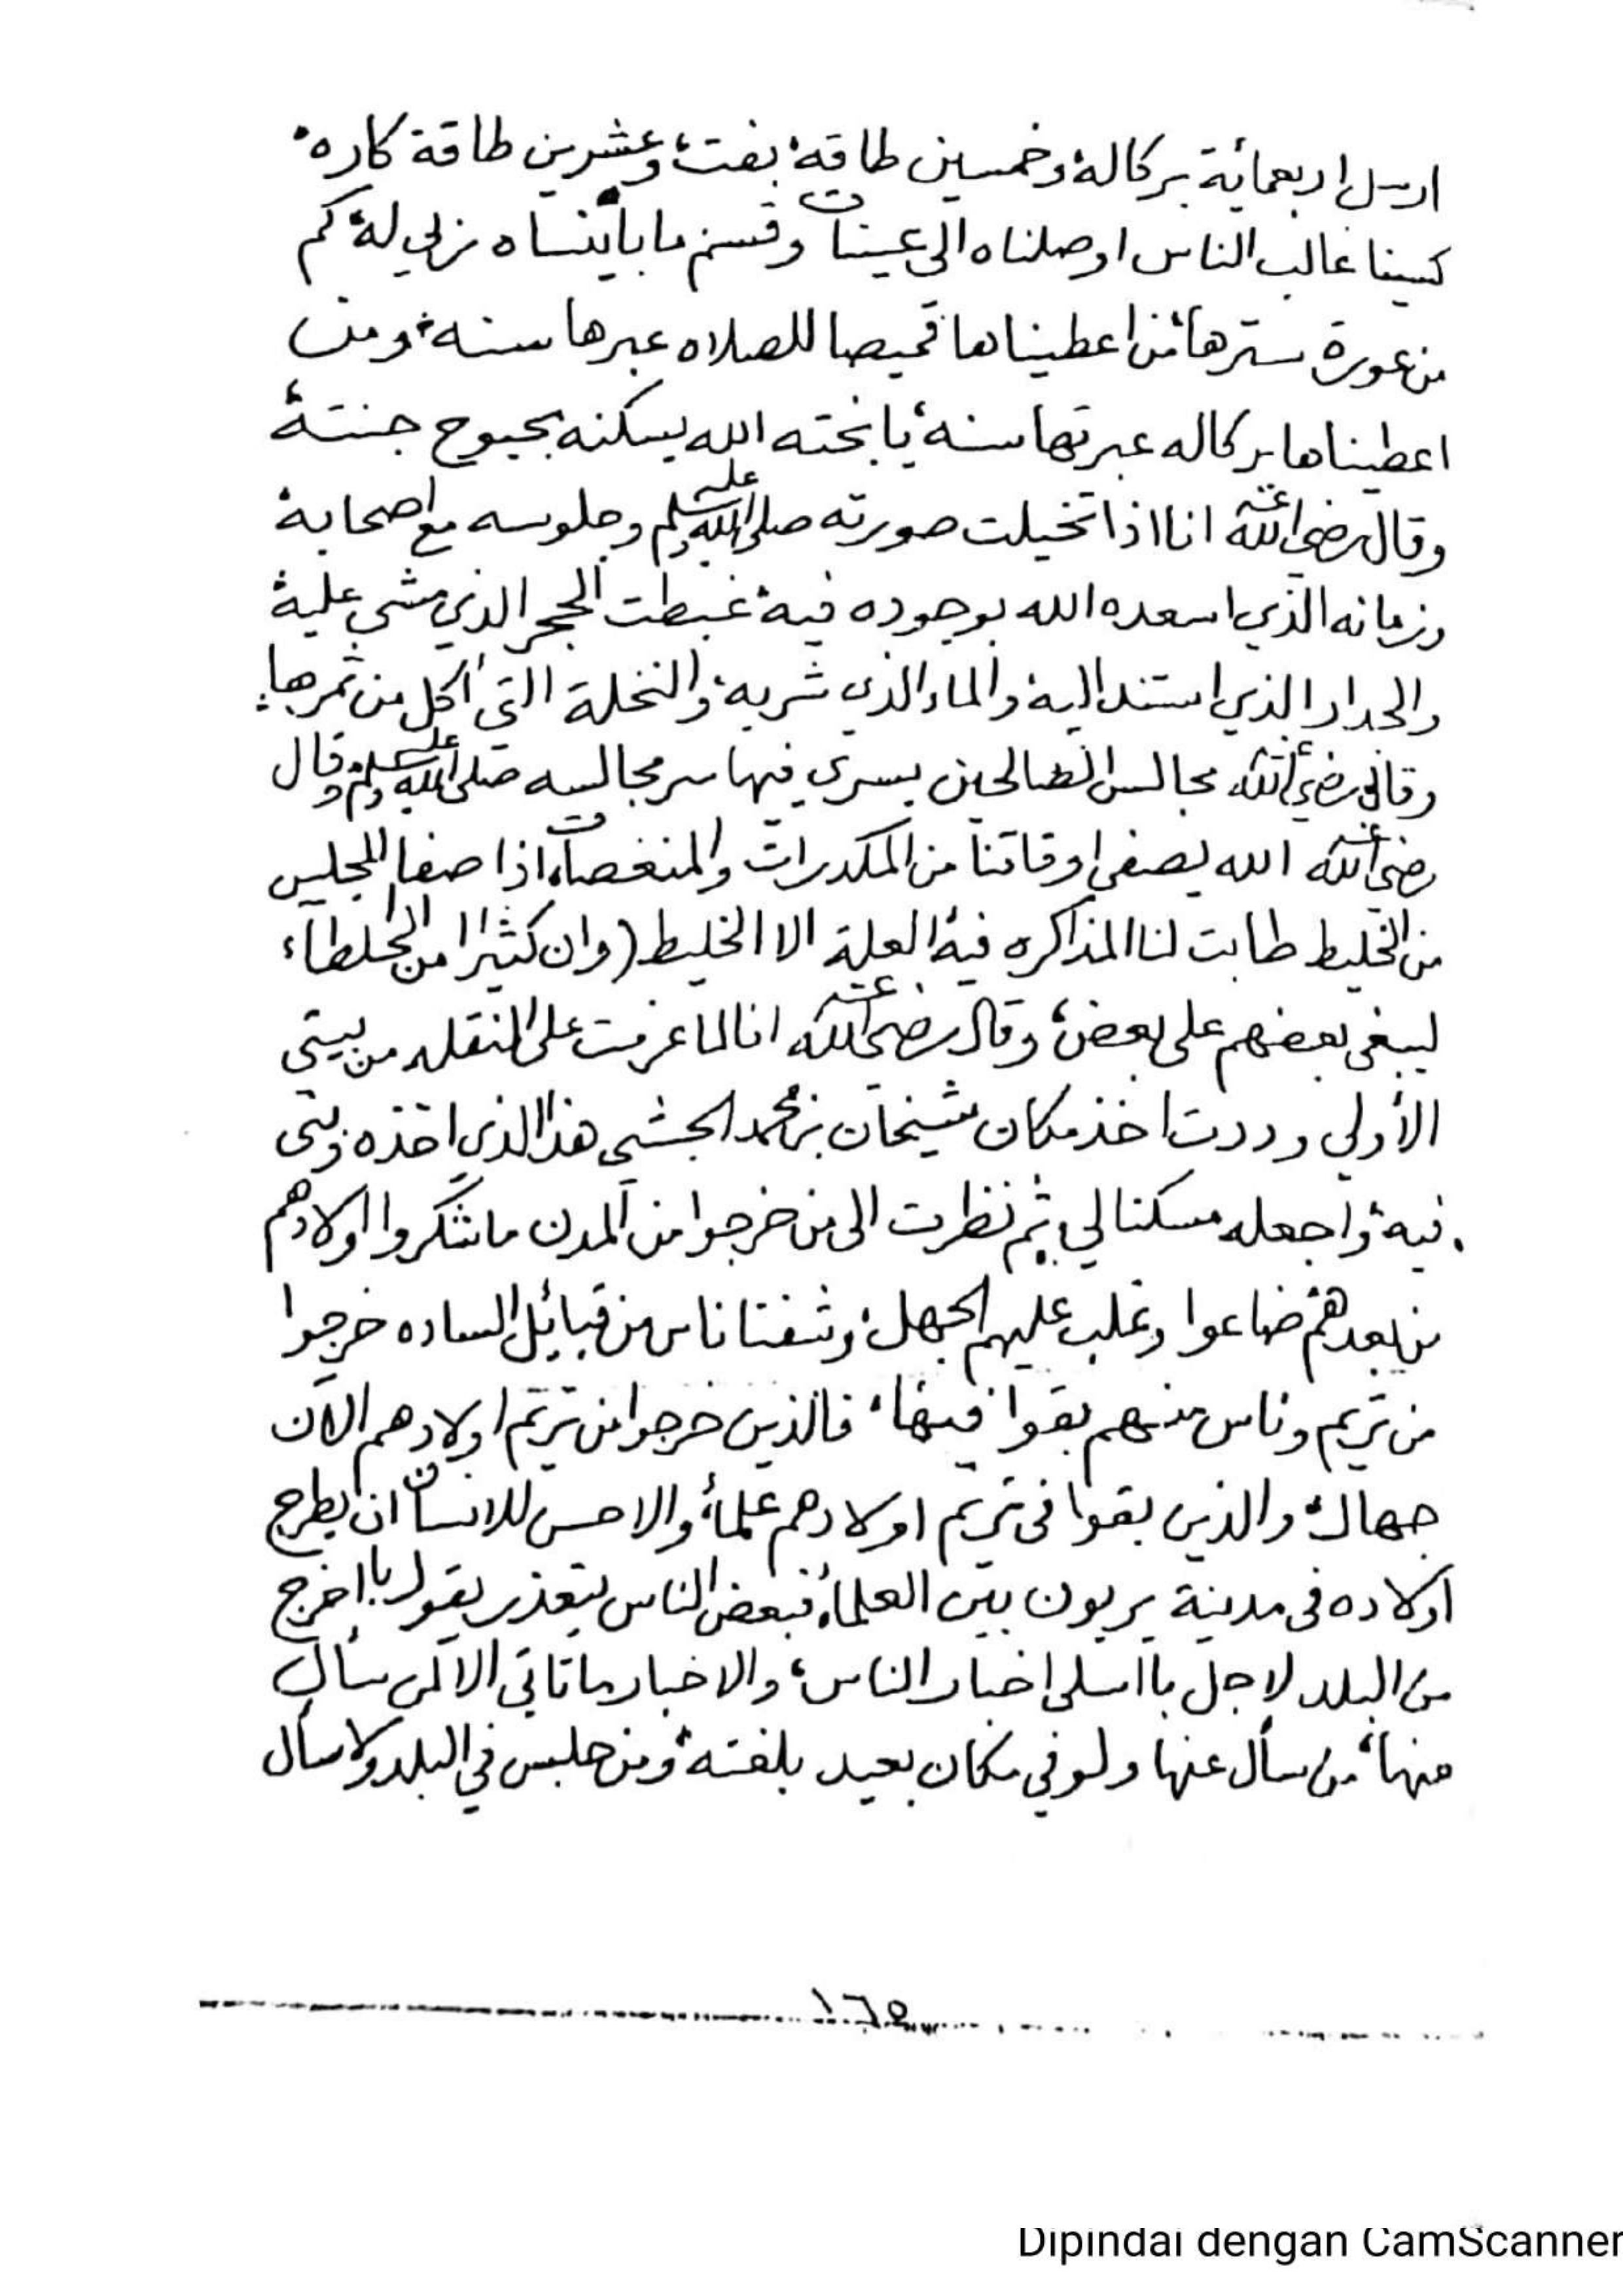 ارسل اربعمائة بركالة وخمسين طاقة بفت، وعشرين طاقة كاره،
كسينا غالب الناس اوصلناه الى عينات وقسم ما باينساه نزلي له كم
من عورة سترها، من اعطيناها قميصا للصلاه عبرها سنه، ومن
اعطيناها بركاله عبرتها سنة، يا بخته الله يسكنه بحبوح جنته
وقال رضي الله عنه انا اذا تخيلت صورته صلى الله عليه وسلم وجلوسه مع اصحابه
وزمانه الذي اسعده الله بوجوده فيه، غبطت الحجر الذي مشى عليه
والجدار الذي استند اليه، والماء الذي شربه، والنخلة التي اكل من ثمرها:
وقال رضي الله عنه مجالس الصالحين يسري فيها سر مجالسه صلى الله عليه وسلم، وقال
رضي الله عنه الله يصفي اوقاتنا من المكدرات والمنغصات، اذا صفا المجلس
من الخليط طابت لنا المذاكره فيه، العلة الا الخليط (وان كثيرا من الخلطاء
ليبغي بعضهم على بعض، وقال رضي الله عنه انا لما عزمت على النقله من بيتي
الأولي وردت اخذ مكان شيخان بن محمد الحبشي هذا الذي اخذه وبنى
فيه، واجعله مسكنا لي ثم نظرت الى من خرجوا من المدن ما شكروا اولادهم
من بعدهم ضاعوا وغلب عليهم الجهل، وشفنا ناس من قبائل الساده خرجوا
من تريم وناس منهم بقوا فيها، فالذين خرجوا من تريم اولادهم الآن
جهال، والذين بقوا في تريم اولادهم علماء، والاحسن للانسان ان يطرح
أولاده في مدينة يربون بين العلماء، فبعض الناس يتعذر يقول با اخرج
من البلد لاجل با اسلى اخبار الناس، والاخبار ما تاتي الا لمن سأل
منها، من سأل عنها ولو في مكان بعيد بلغته، ومن جلس في البلد ولا سأل
١٦٥
Dipindai dengan CamScanner